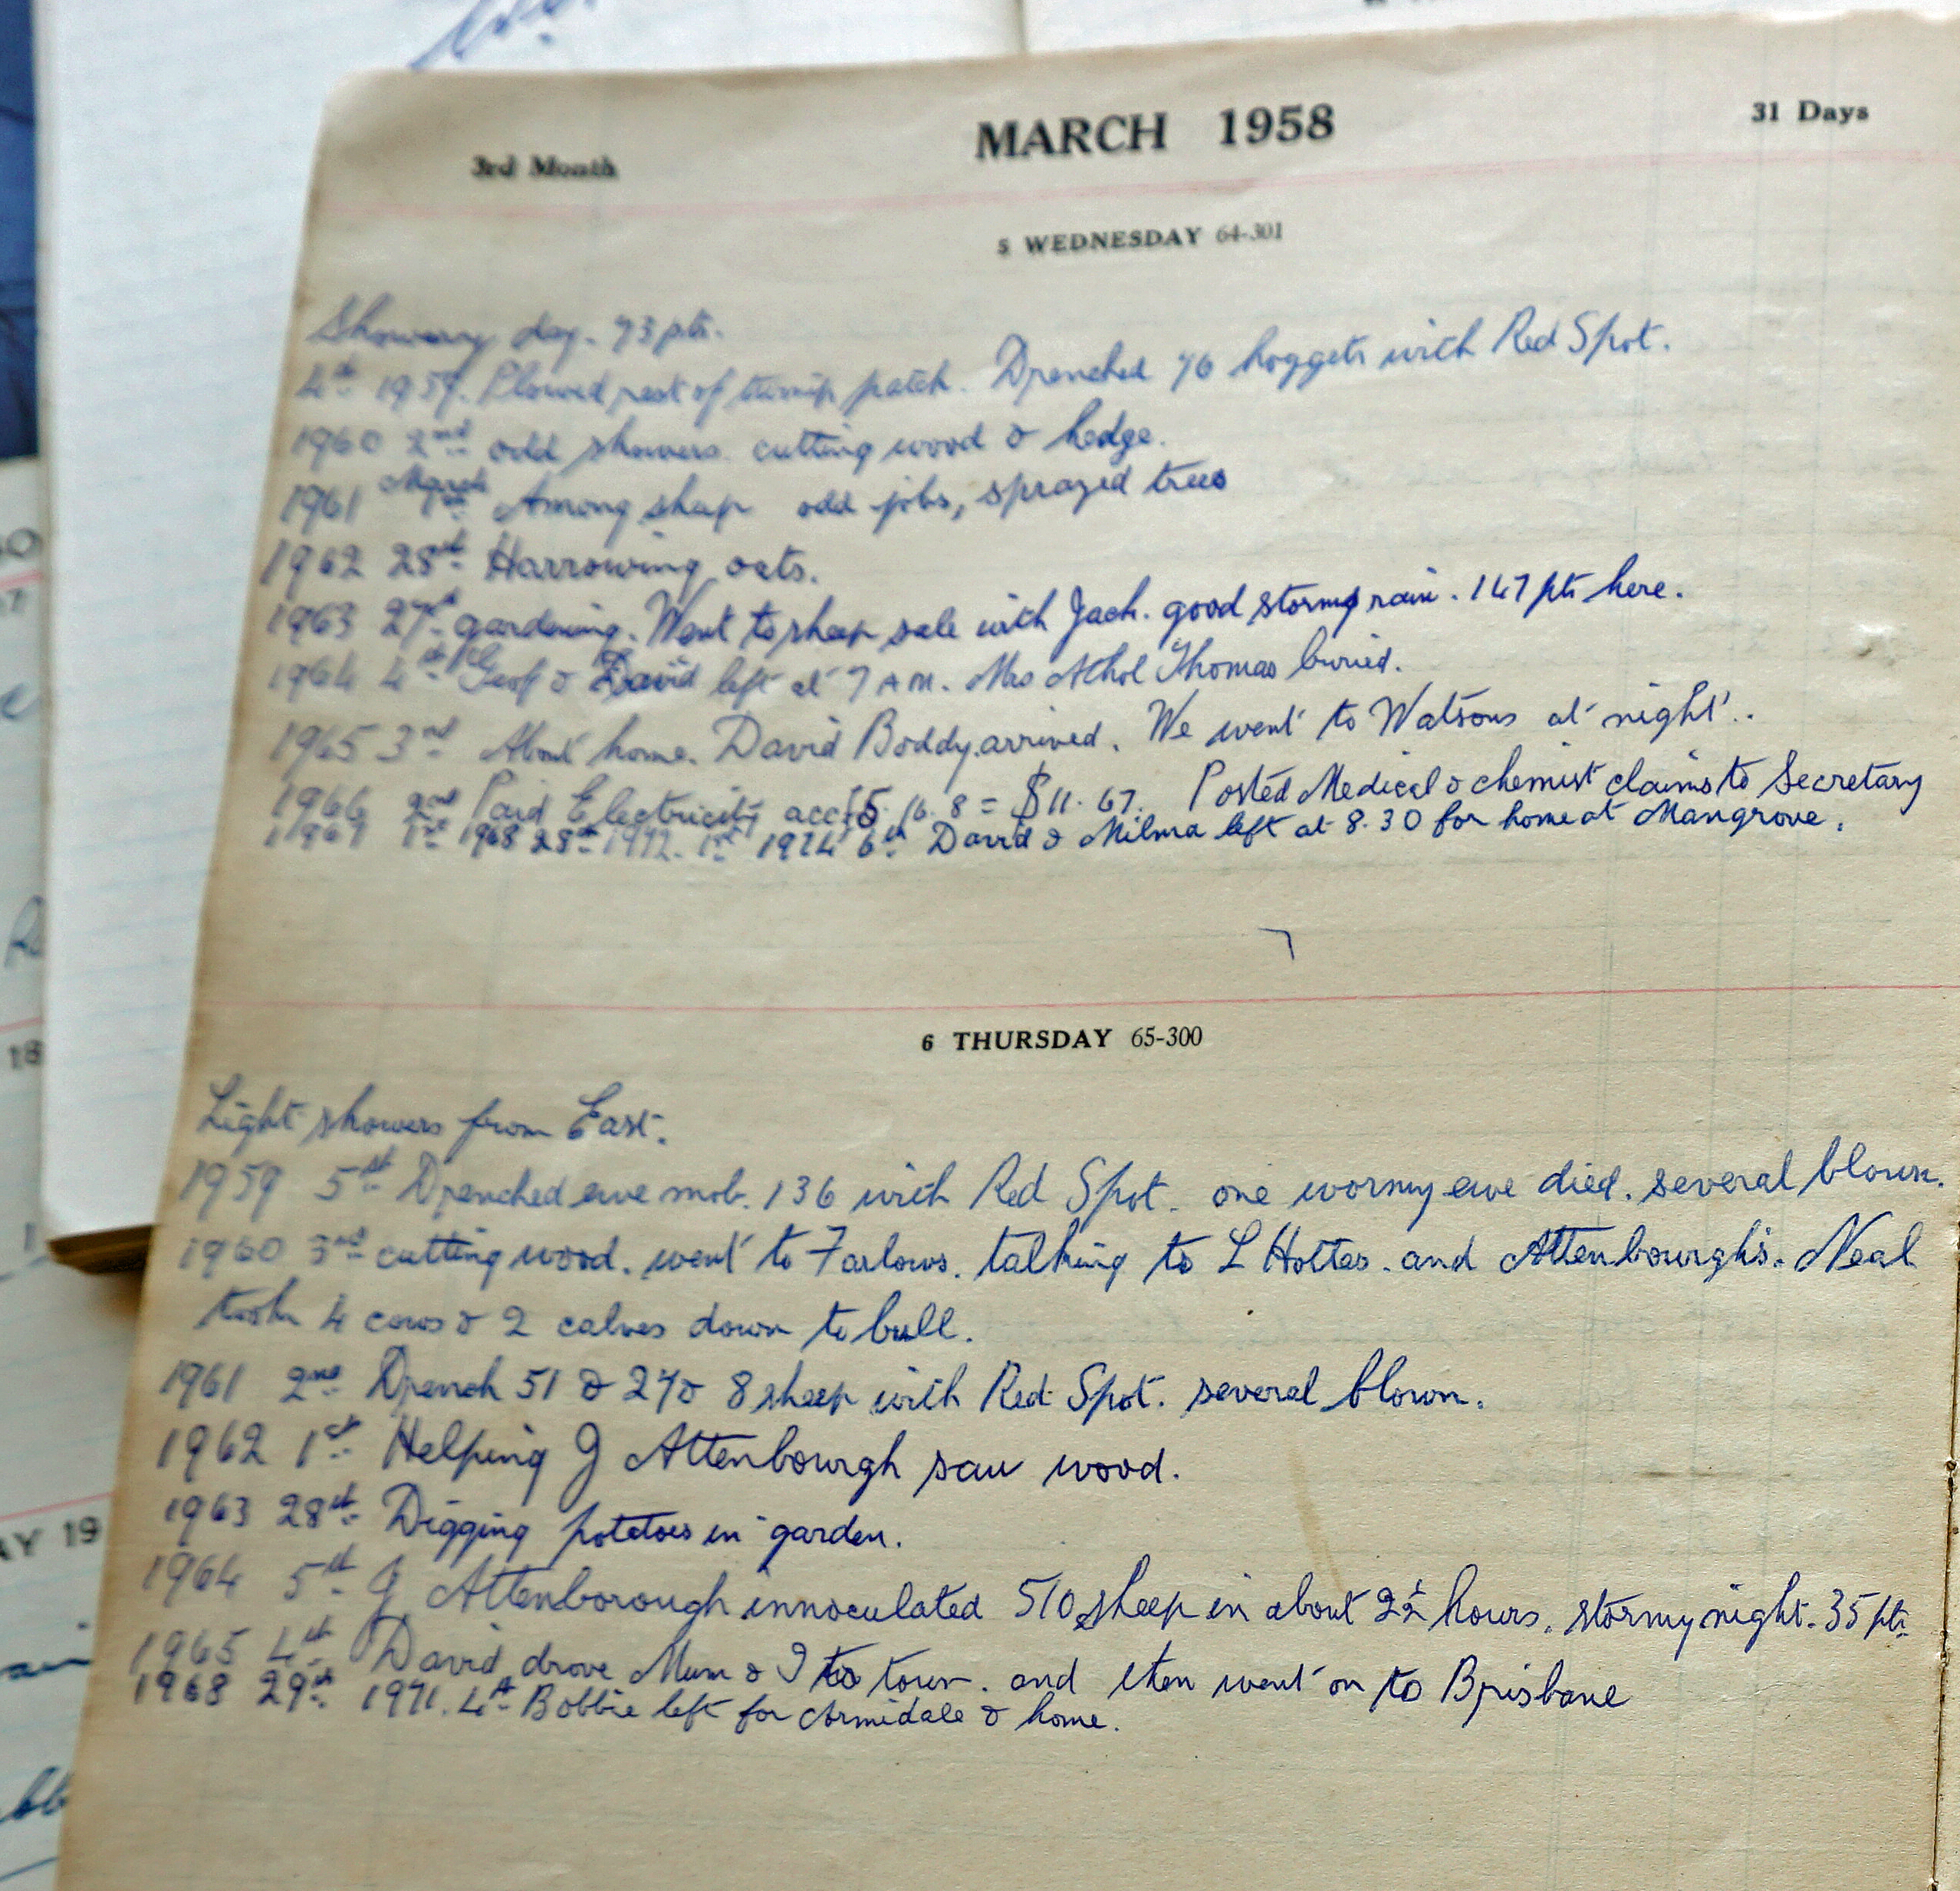 3rd Month MARCH 1958 31 Days
5 WEDNESDAY 64-301
Showery day. 73 pts.
4th 1959. Plowed rest of turnip patch. Drenched 46 hoggets with Red Spot.
1960 2nd odd showers. cutting wood & hedge.
1961 March 1st Among sheep odd jobs, sprayed trees
1962 28th Harrowing oats.
1963 27th gardening. Went to sheep sale with Jack. good stormy rain. 147 pts here.
1964 4th Geof & David left at 7 AM. Mrs Athol Thomas buried.
1965 3rd About home. David Boddy arrived. We went to Watsons at night.
1966 2nd Paid Electricity acc £5. 16. 8 = $11. 67. Posted Medical & chemist claims to Secretary
1967 1st 1968 28th 1972. 1st 1974 6th David & Milma left at 8.30 for home at Mangrove.
6 THURSDAY 65-300
Light showers from East.
1959 5th Drenched ewe mob. 136 with Red Spot. one wormy ewe died. several blown.
1960 3rd cutting wood. went to Farlows. talking to L Hottes. and Attenbourghs. Neal
took 4 cows & 2 calves down to bull.
1961 2nd Drench 51 & 24 & 8 sheep with Red Spot. several blown.
1962 1st Helping J Attenbourgh saw wood.
1963 28th Digging potatoes in garden.
1964 5th J Attenborough innoculated 510 sheep in about 2½ hours. stormy night. 35 pts
1965 4th David drove Mum & I to town. and then went on to Brisbane
1968 29th 1971. 4th Bobbie left for Armidale & home.
AY 19
18